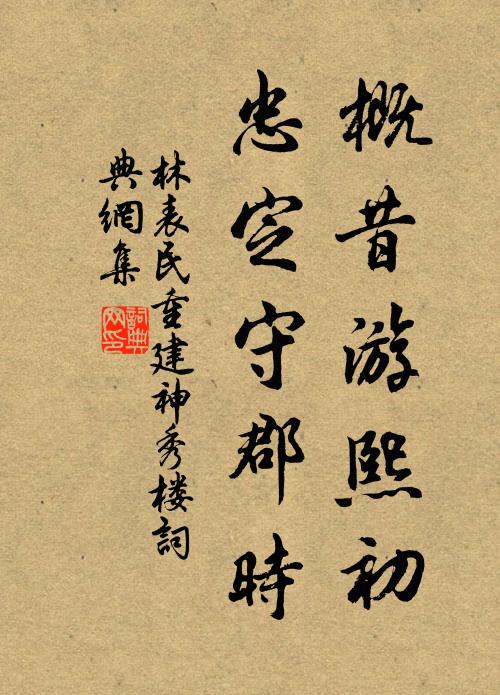 概昔游熙初
忠定守郡時
林表民重建神秀楼詞
典網集
詞典
网印